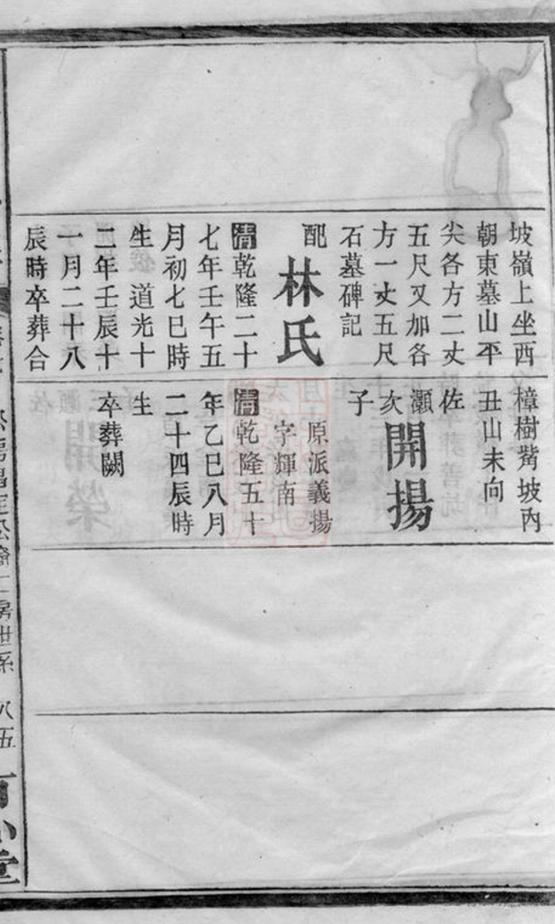 坡嶺上坐西
朝東墓山平
尖各方二丈
五尺又加各
方一丈五尺
石墓碑記
配
林氏
清乾隆二十
七年壬午五
月初七巳時
生 道光十
二年壬辰十
一月二十八
辰時卒葬合
樟樹觜坡內
丑山未向
佐
灝
次
子
開揚
原派義揚
字輝南
清乾隆五十
年乙巳八月
二十四辰時
生
卒葬闕
房世系
八五
堂